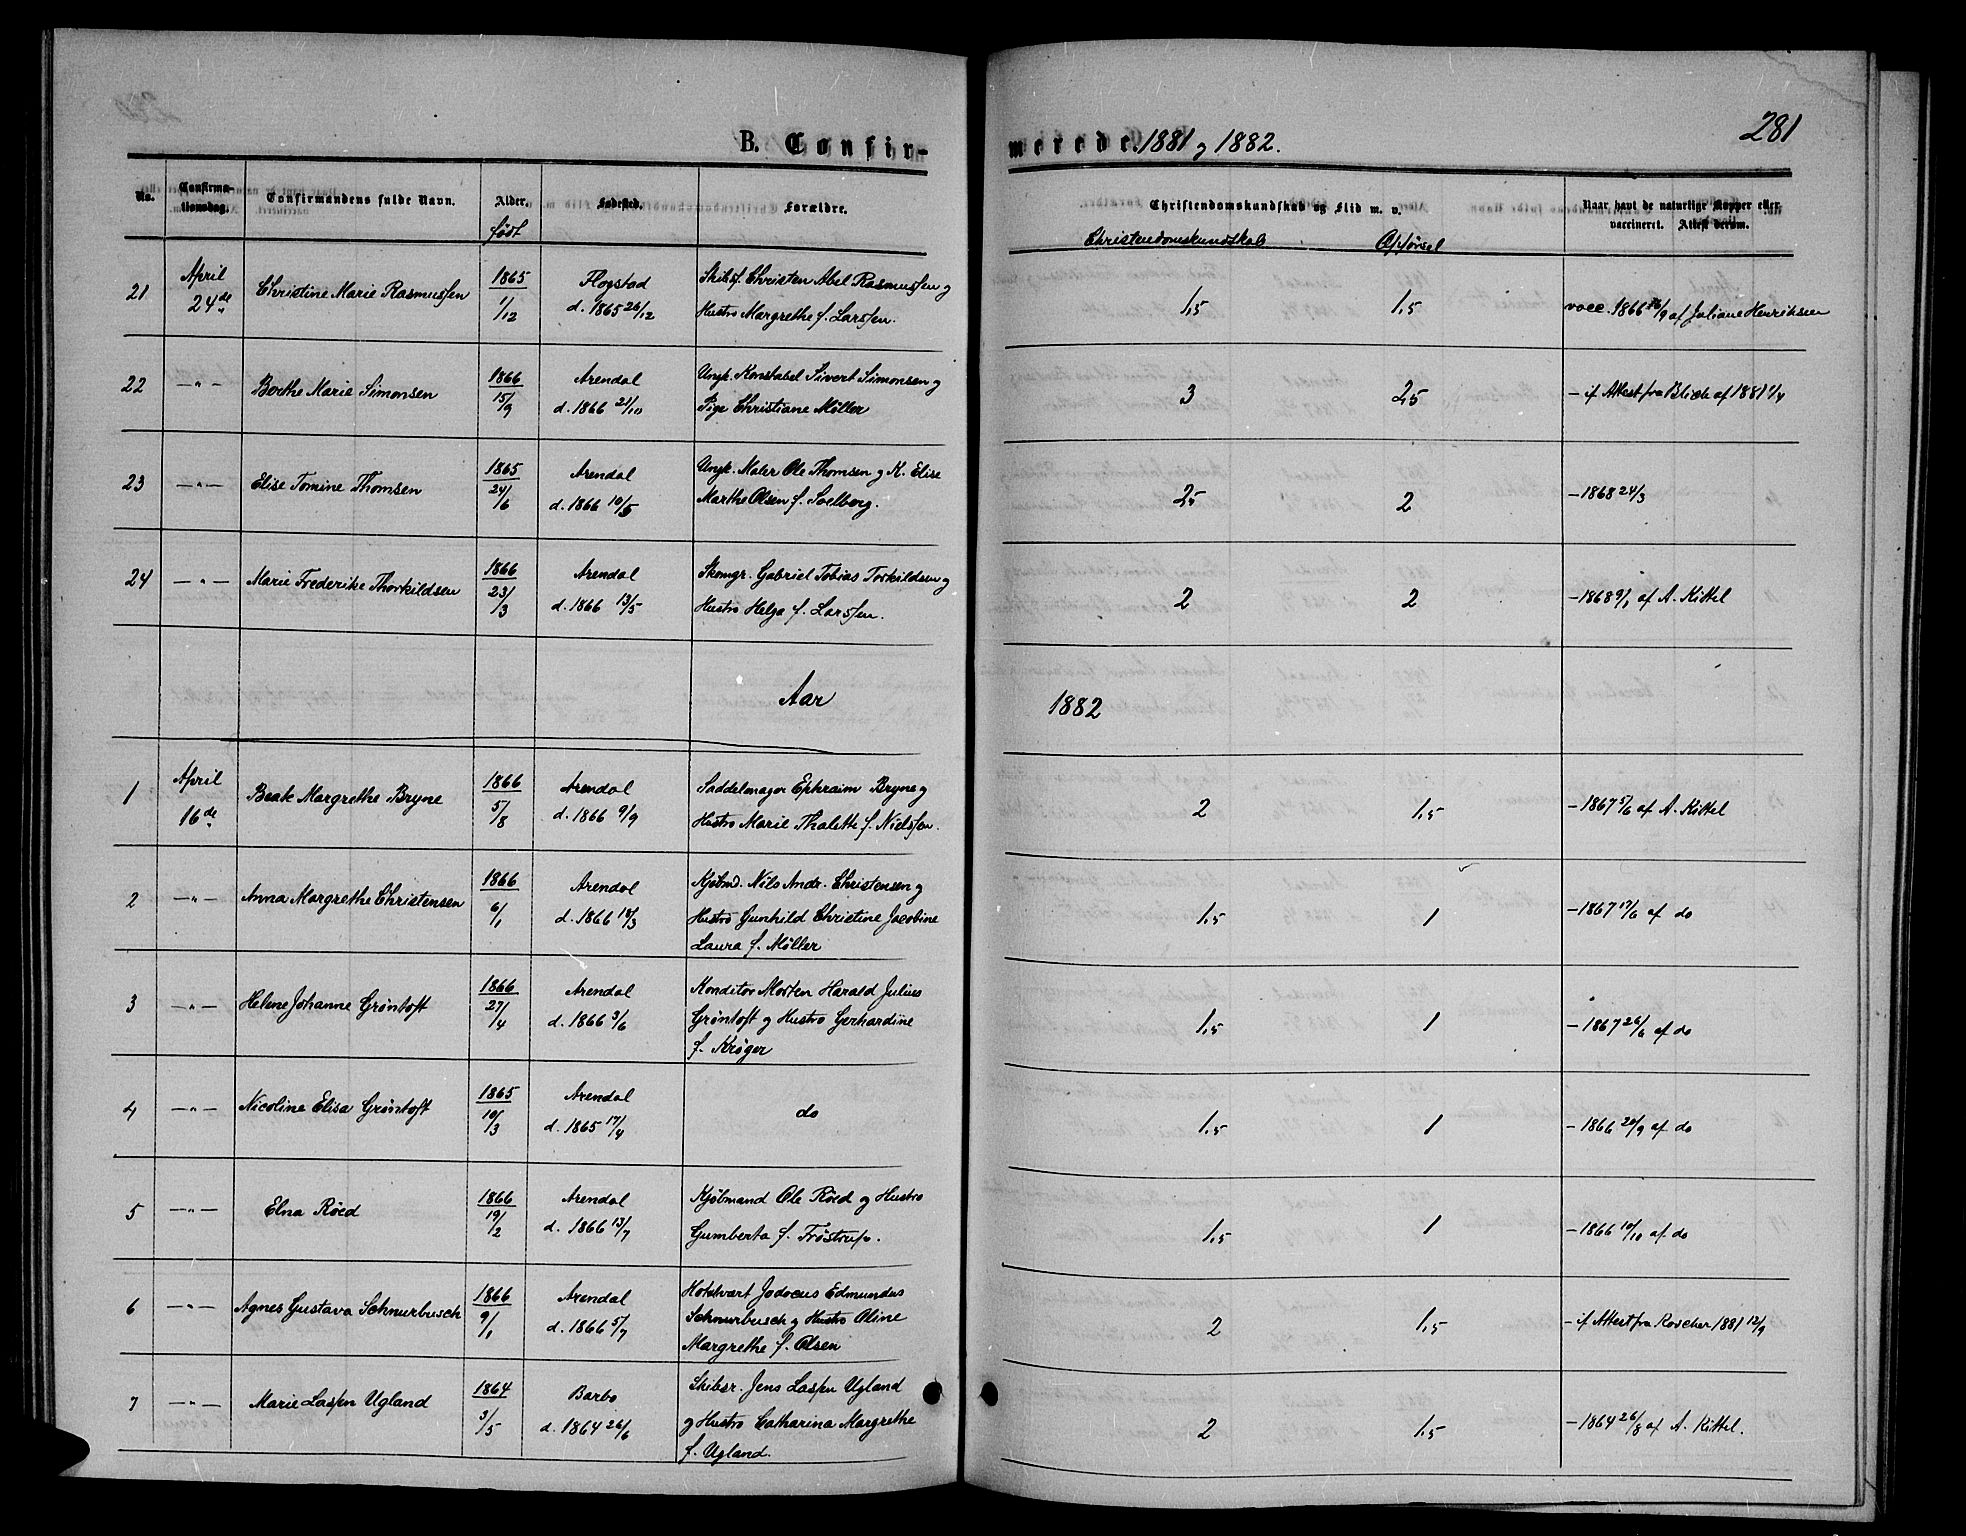 281
B. Confirmerede. 1881 og 1882.
No. Confirmationsdag. Confirmandens fulde Navn. Alder. født Fødested. Forældre. Christendomskundskab og Flid m. v. Christendomskundskab Opførsel Naar havt de naturlige Kopper eller vaccineret. Attest derom.
21 April 24de Christine Marie Rasmussen 1865 1/12 Flogstad d. 1865 26/12 Skibsf. Christen Abel Rasmussen og
Hustro Margrethe f. Larssen. 1,5 1,5 vacc. 1866 26/9 af Juliane Henriksen
22 —"— Berthe Marie Simonsen 1866 15/9 Arendal d. 1866 21/10 Ungk. Konstabel Sivert Simonsen og
Pige Christiane Møller 3 2,5 — if Attest fra Blich af 1881 1/4
23 —"— Elise Tomine Thomsen 1865 24/6 Arendal d. 1866 10/5 Ungk. Maler Ole Thomsen og K. Elise
Marthe Olsen f. Solberg. 2,5 2 — 1868 24/3
24 —"— Marie Frederike Thorkildsen 1866 23/3 Arendal d. 1866 13/5 Skomgr. Gabriel Tobias Torkildsen og
Hustro Helga f. Larssen. 2 2 — 1868 9/1 af A. Kittel
Aar 1882
1 April 16de Beate Margrethe Bryne 1866 5/8 Arendal d. 1866 9/9 Saddelmager Ephraim Bryne og
Hustro Marie Thalette f. Nielssen. 2 1,5 — 1867 5/6 af A. Kittel
2 —"— Anna Margrethe Christensen 1866 6/1 Arendal d. 1866 18/3 Kjøbmd. Nils Andr. Christensen og
Hustro Gunhild Christine Jacobine
Laura f. Møller 1,5 1 — 1867 17/6 af do
3 —"— Helene Johanne Grøntoft 1866 27/4 Arendal d. 1866 3/6 Konditor Morten Harald Julius
Grøntoft og Hustro Gerhardine
f. Krøger 1,5 1 — 1867 26/6 af do
4 —"— Nicoline Elisa Grøntoft 1865 10/3 Arendal d. 1865 17/4 do 1,5 1 — 1866 20/9 af do
5 —"— Elna Røed 1866 19/2 Arendal d. 1866 13/7 Kjøbmand Ole Røed og Hustro
Gumberta f. Trøstrup. 1,5 1 — 1866 10/10 af do
6 —"— Agnes Gustava Schnurbusch 1866 9/1 Arendal d. 1866 5/7 Hotelvært Jodocus Edmundus
Schnurbusch og Hustro Oline
Margrethe f. Olsen 2 1,5 — if Attest fra Roscher 1881 12/9
7 —"— Marie Lassen Ugland 1864 3/5 Barbo d. 1864 26/6 Skibsr. Jens Lassen Ugland
og Hustro Catharina Margrethe
f. Ugland. 2 1,5 — 1864 26/8 af A. Kittel.